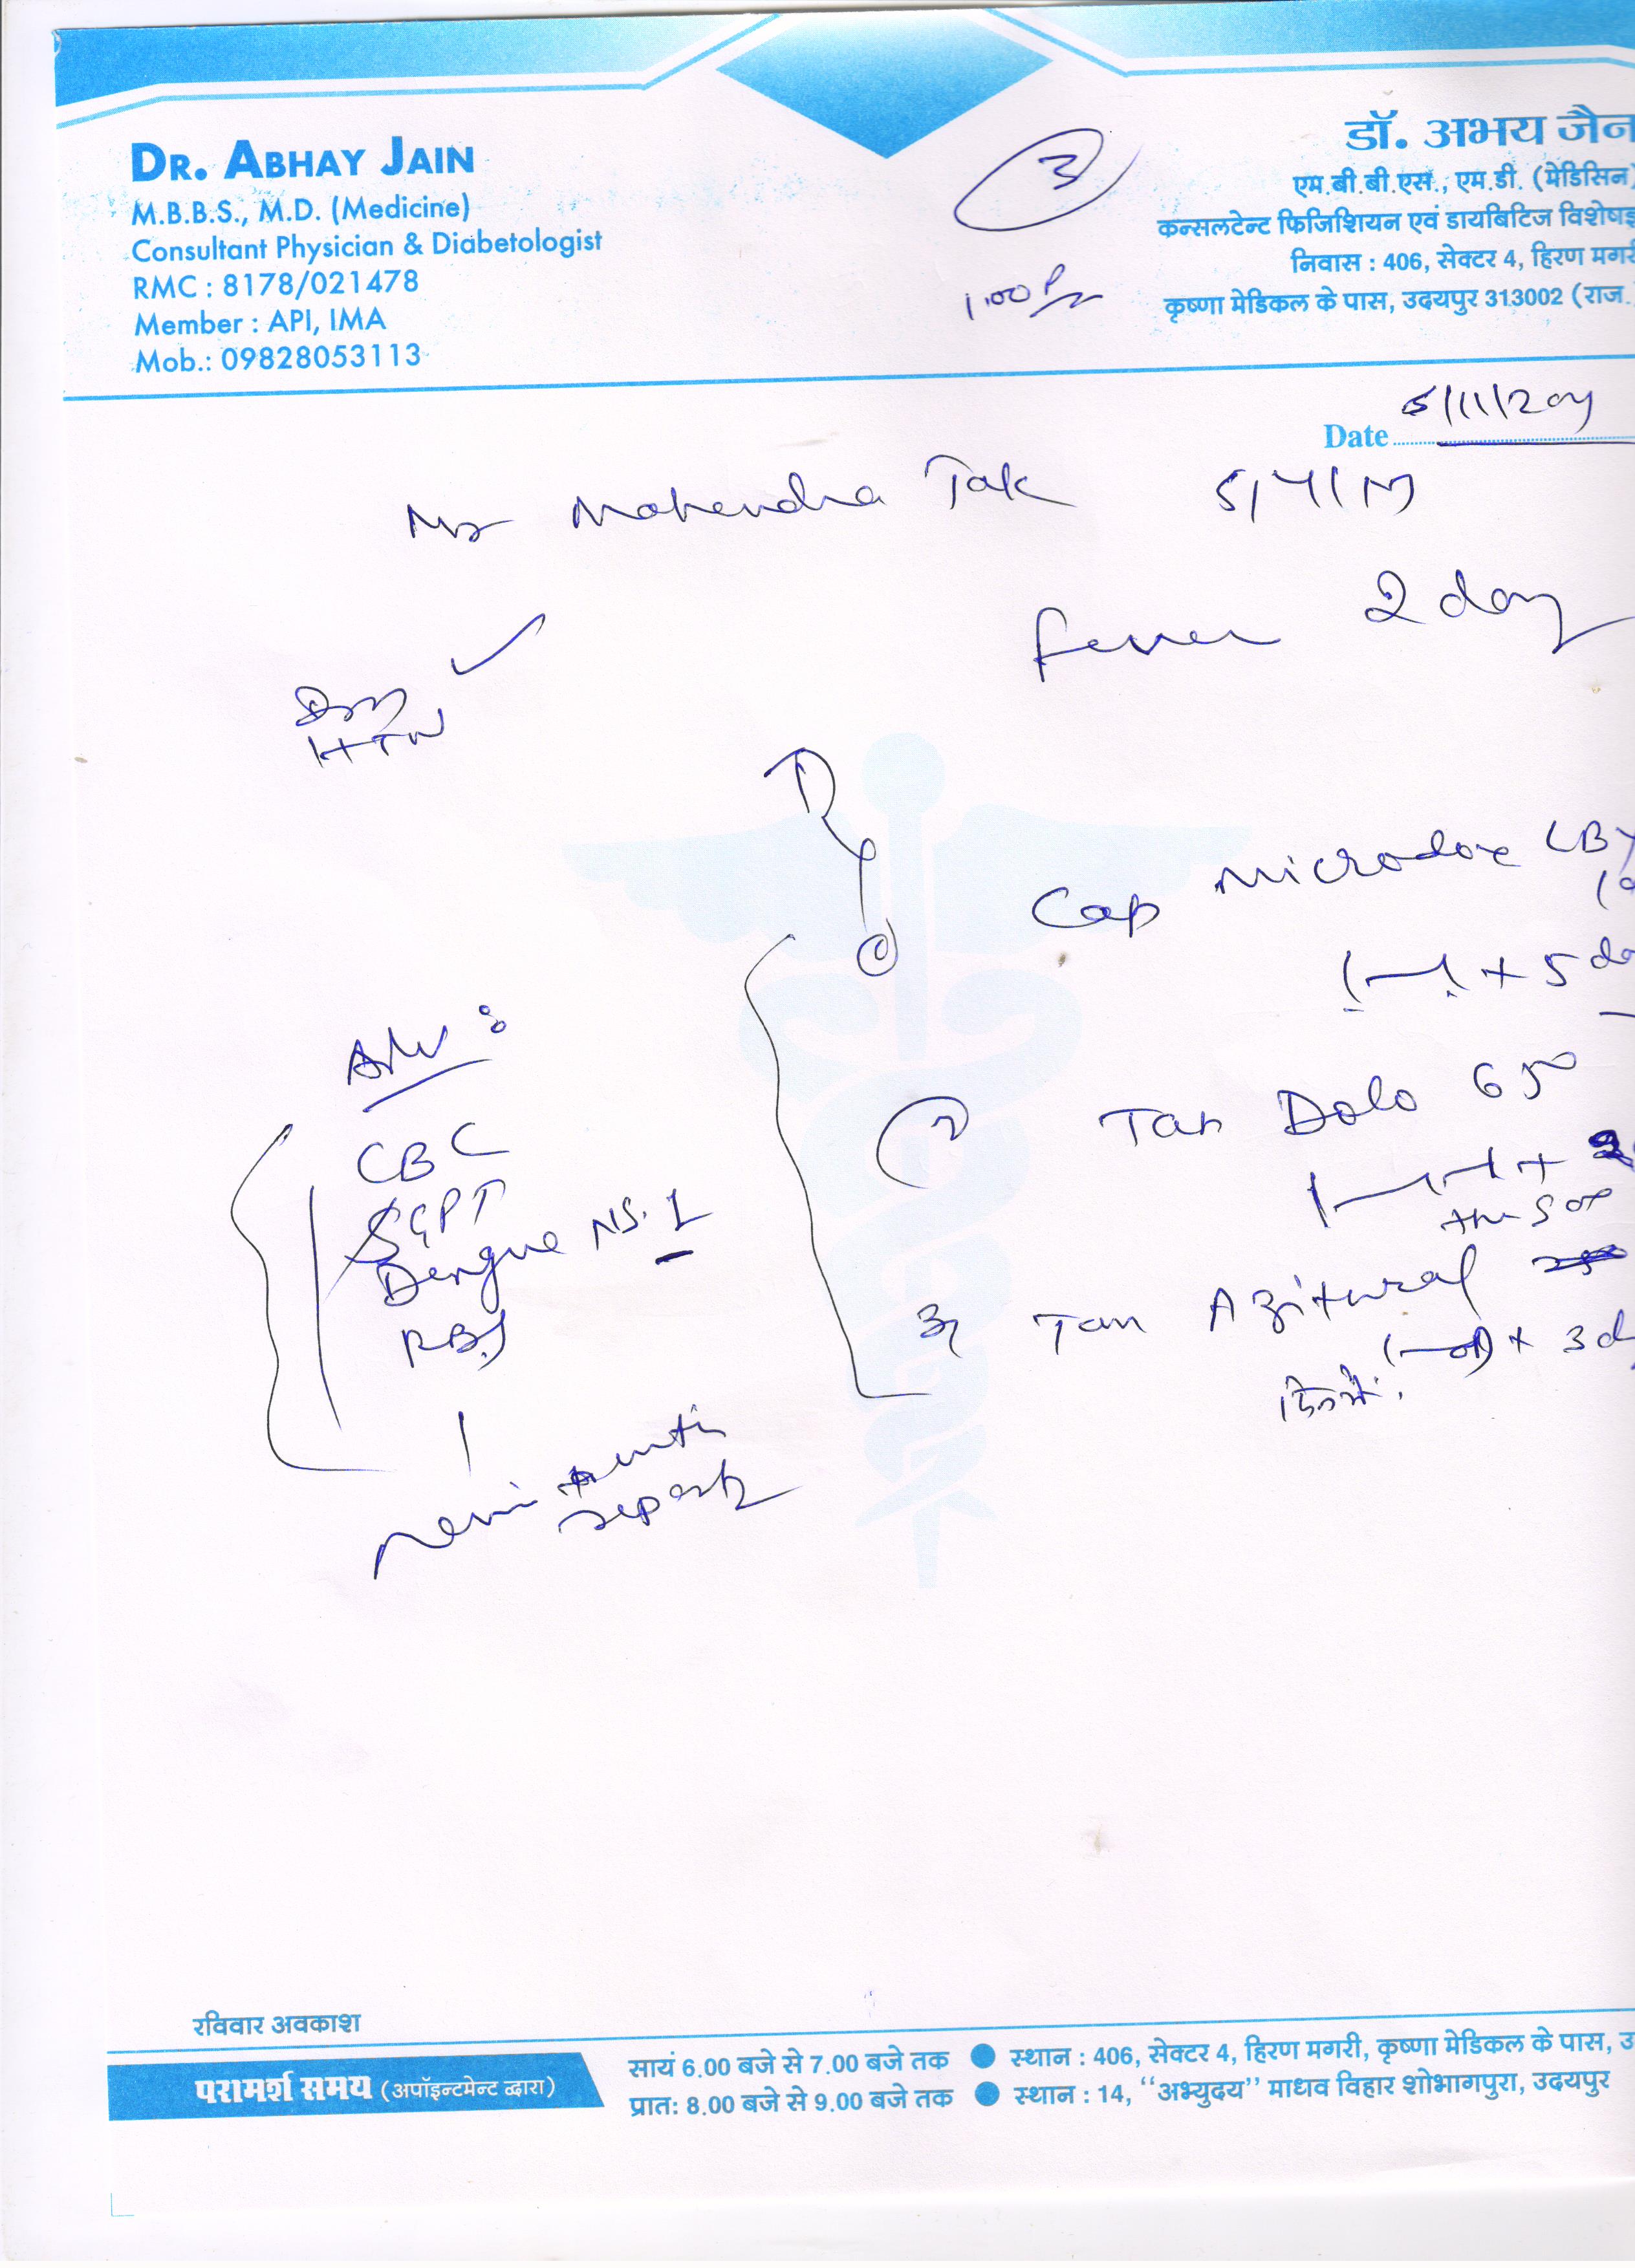 DR. ABHAY JAIN
M.B.B.S., M.D. (Medicine)
Consultant Physician & Diabetologist
RMC : 8178/021478
Member : API, IMA
Mob.: 09828053113
3
1.00
डॉ. अभय जैन
एम.बी.बी.एस., एम.डी. (मेडिसिन)
कन्सलटेन्ट फिजिशियन एवं डायबिटिज
निवास : 406, सेक्टर 4, हिरण मगरी
कृष्णा मेडिकल के पास, उदयपुर 313002 (राज.)
Date
Mr Mahendra Tak
fever 2 day
DM
HTN
Rx
Cap Microdox LBX
1-1 + 5
Adv :
CBC
SGPT
Dengue NS.1
RBS
2 Tab Dolo 650
3 Tab Azitural
+ 3 d
reports
रविवार अवकाश
परामर्श समय (अपॉइन्टमेन्ट द्वारा)
सायं 6.00 बजे से 7.00 बजे तक ● स्थान : 406, सेक्टर 4, हिरण मगरी, कृष्णा मेडिकल के पास, उ
प्रात: 8.00 बजे से 9.00 बजे तक ● स्थान : 14, ‘‘अभ्युदय’’ माधव विहार शोभागपुरा, उदयपुर